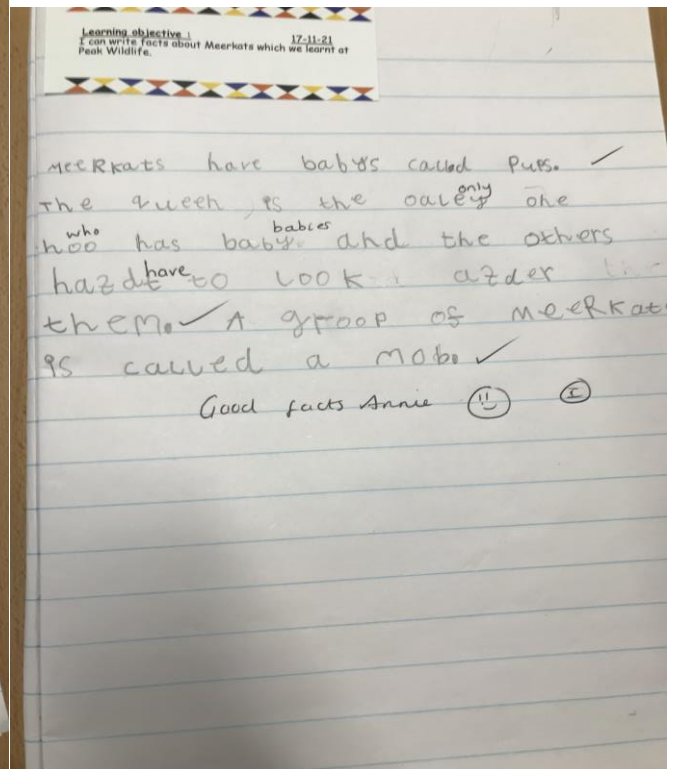 Learning objective :
17-11-21
I can write facts about Meerkats which we learnt at
Peak Wildlife.
MeeRkats have babys called Pups. ✓
The queen is the oaley only one
who
hoo has baby babies and the others
hazdt have to look azder
them. ✓ A groop of MeeRkats
is called a mob. ✓
Good facts Annie
I